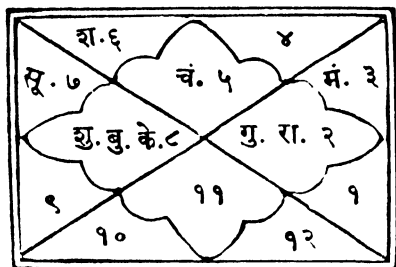 श. ६ ४
सू. ७ चं. ५ मं. ३
शु. बु. के. ८ गु. रा. २
९ ११ १
१० १२